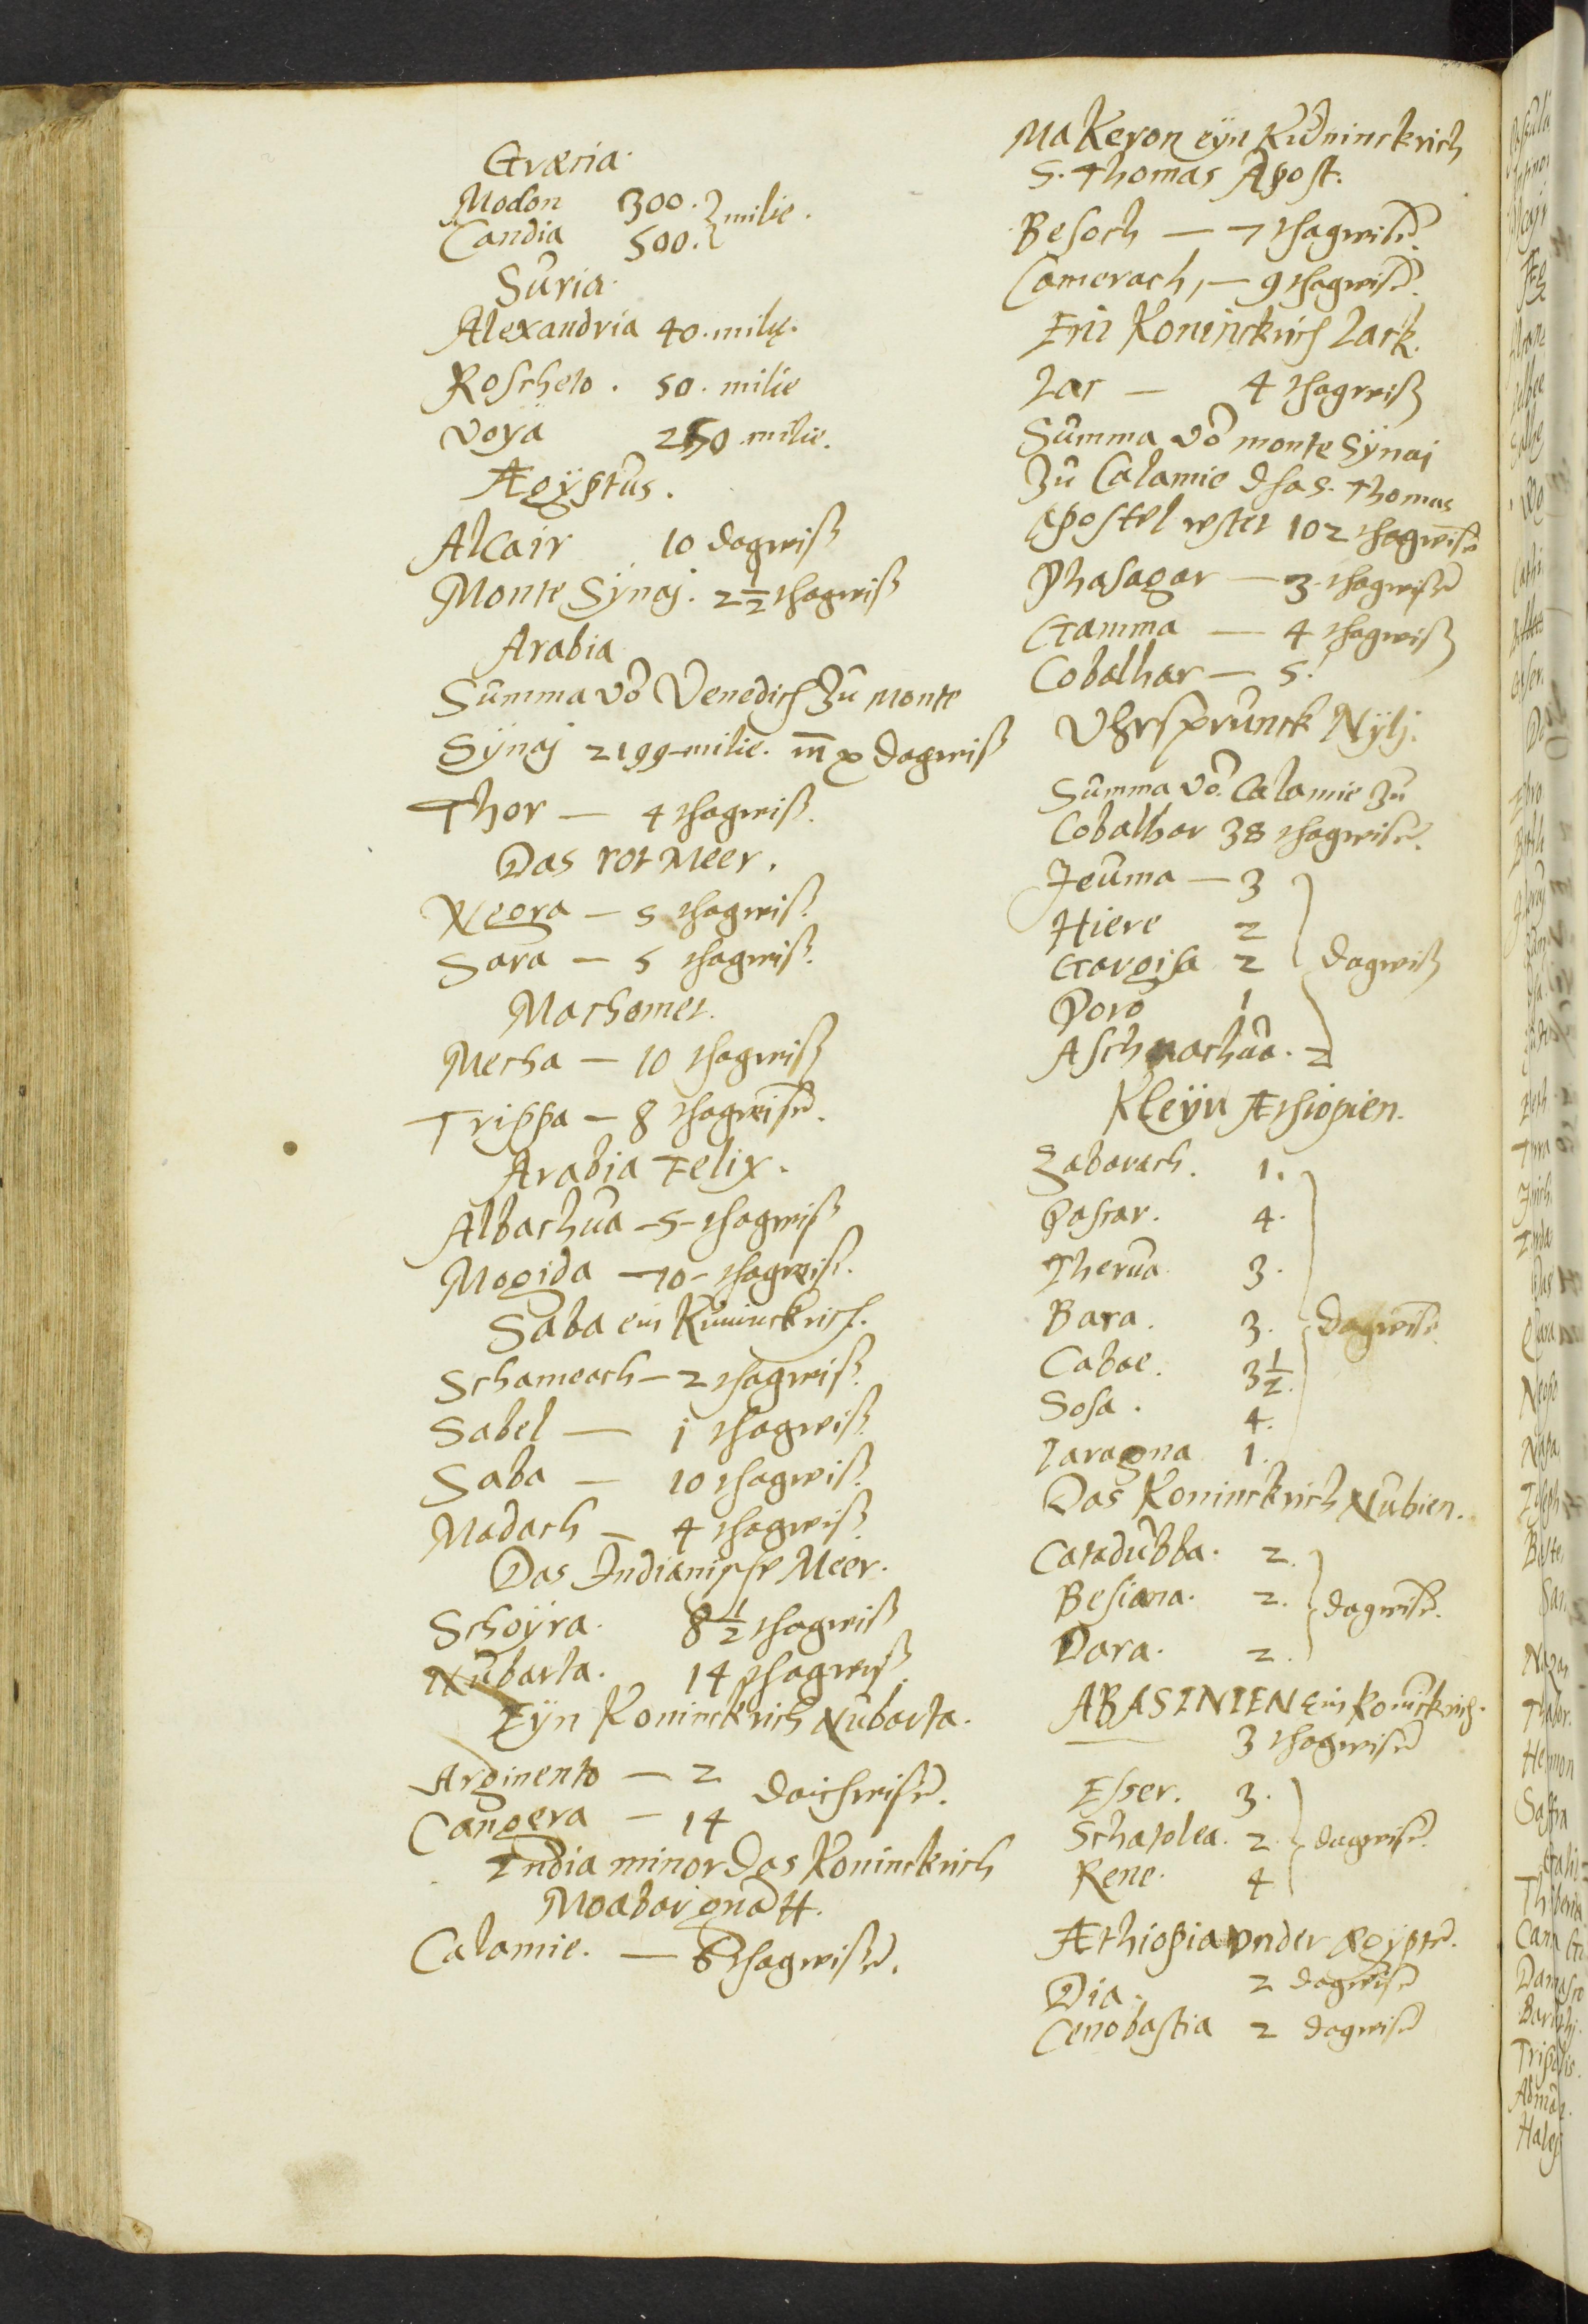 Græcia.
Modon 300. } milie.
Candia 500.
Suria.
Alexandria 40. milie.
Roscheto. 50. milie
Voya 250 milie.
Ægÿptus.
Alcair 10 dagreiß
Monte Sÿnaj. 2½ thagreiß
Arabia
Summa võ Venedich zu monte
Sÿnaj 2199 milie. m̄ x dagreiß
Thor — 4 thagreiß.
Das rot Meer.
Negra — 5 thagreiß.
Sara — 5 thagreiß.
Machomet.
Mecha — 10 thagreiß
Trippa — 8 thagreisẽ.
Arabia Felix.
Albachua -5- thagreiß
Mogida —10- thagreisẽ.
Saba ein Kuninckrich.
Schameach — 2 thagreiß.
Sabel — 1 thagreiß.
Saba — 10 thagreiß.
Madach — 4 thagreiß.
Das Indianische Meer.
Schoÿra. 8½ thagreiß
Nubarta. 14 thagreiß.
Eÿn Koninckrich Nubarta.
Arginento — 2 daichreisẽ.
Cangera — 14
India minor Das Koninckrich
Moabar gnãtt.
Calamie. — 6 thagreisẽ.
Makeron eÿn Kuninckrich
S. Thomas Apost.
Besoch — 7 thagreisẽ.
Camerach, — 9 thagreisẽ.
Ein Koninckrich Lack.
Lac — 4 thagreiß
Summa võ monte Sÿnai
zu Calamie da S. Thomas
Apostel 102 thagreisẽ
Phasagar — 3 thagreisẽ
Gamma — 4 thagreiß
Cobalhar — 5.
Vhrsprunck Nÿlj.
Summa võ Calamie zu
Cobalhar 38 thagreisẽ.
Jeuma — 3
Hiere 2
Gargisa 2 } dagreiß
Poro 1
Aschnachua. 2
Kleÿn Æthiopien.
Zabarach. 1.
Pascar. 4.
Therua. 3.
Bara. 3. } dagreisẽ
Cabae. 3½.
Sosa. 4.
Laragna 1.
Das Koninckrich Nubien.
Catadubba. 2.
Besiana. 2. } dagreisẽ.
Dara. 2.
ABASINIEN Ein Koninckrich.
3 thagreisẽ
Esser. 3.
Schatolea. 2. } dagreisẽ.
Rene. 4
Æthiopia vnder Ægiptẽ.
Dia. 2 dagreisẽ
Cenobastia 2 dagreisẽ